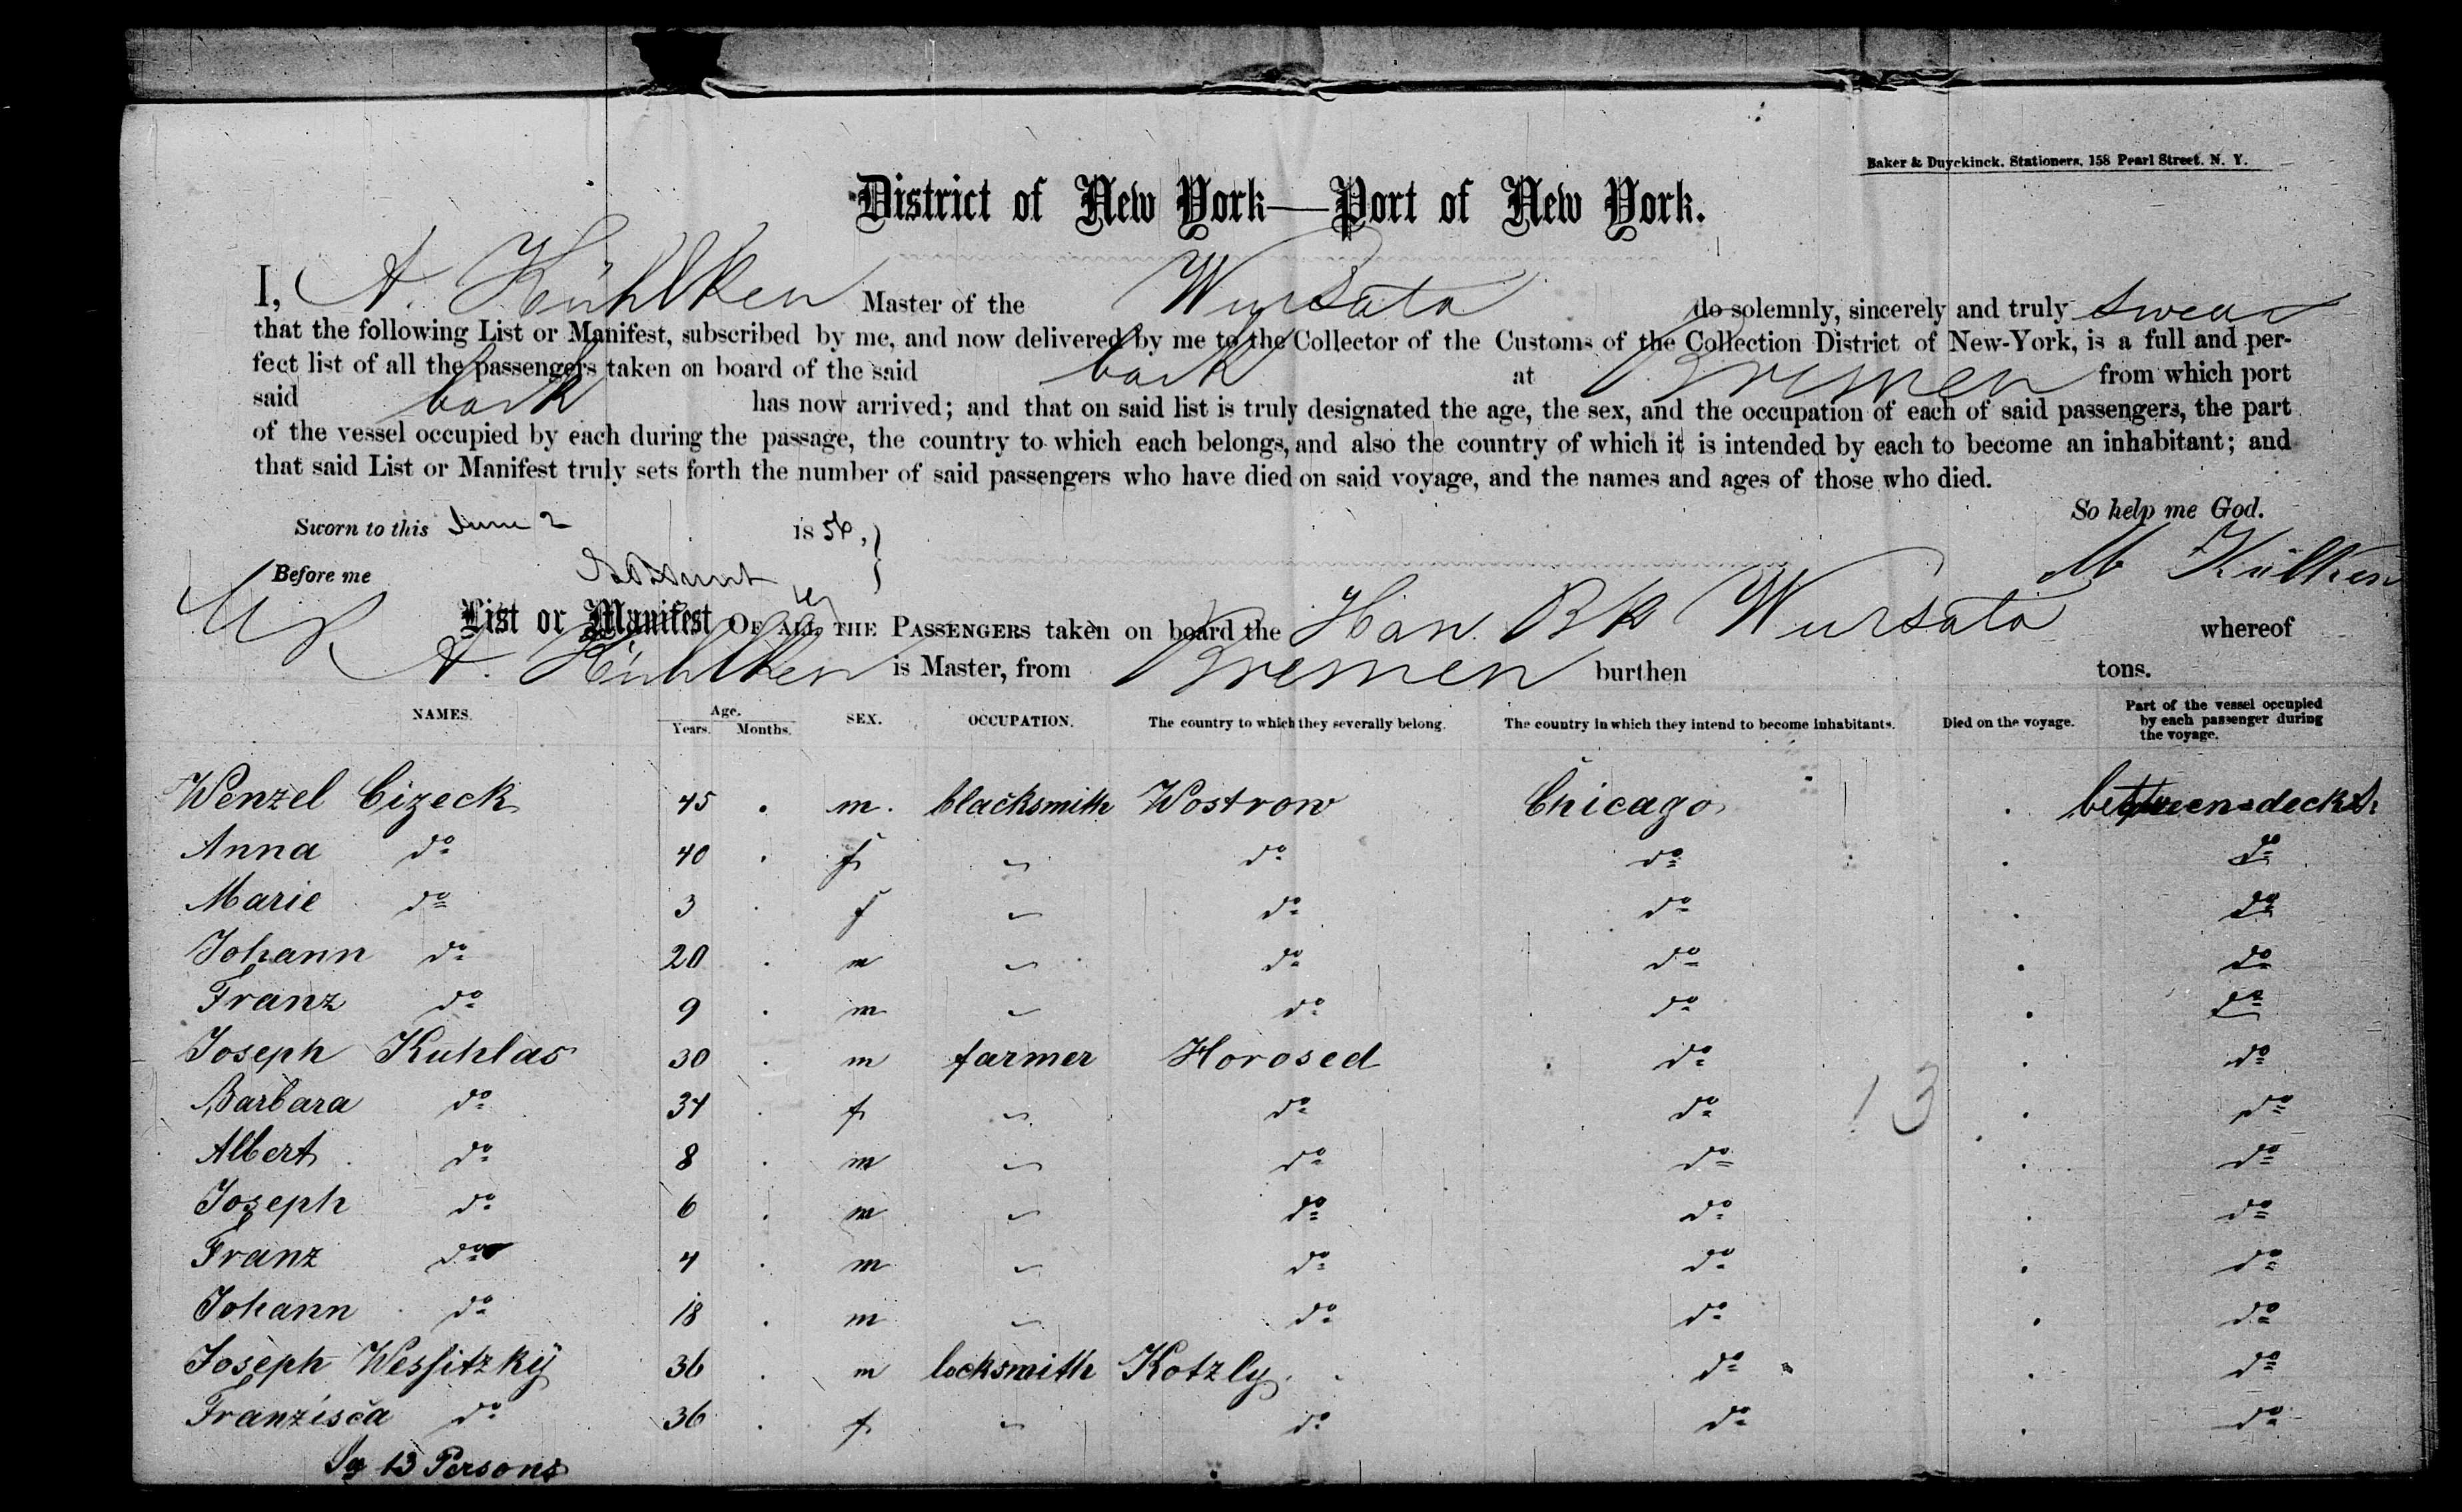 Baker & Duyckinck, Stationers, 158 Pearl Street, N. Y.
District of New York—Port of New York.
I, A. Kühlken Master of the Wursata do solemnly, sincerely and truly swear
that the following List or Manifest, subscribed by me, and now delivered by me to the Collector of the Customs of the Collection District of New-York, is a full and per-
fect list of all the passengers taken on board of the said bark at Bremen from which port
said bark has now arrived; and that on said list is truly designated the age, the sex, and the occupation of each of said passengers, the part
of the vessel occupied by each during the passage, the country to which each belongs, and also the country of which it is intended by each to become an inhabitant; and
that said List or Manifest truly sets forth the number of said passengers who have died on said voyage, and the names and ages of those who died.
So help me God.
Sworn to this June 2 1856,
Külken
Before me
List or Manifest OF ALL THE PASSENGERS taken on board the Han. Bk Wursata whereof
A. Kühlken is Master, from Bremen burthen tons.
NAMES. Age. Years. Months. SEX. OCCUPATION. The country to which they severally belong. The country in which they intend to become inhabitants. Died on the voyage. Part of the vessel occupied by each passenger during the voyage.
Wenzel Cizeck 45 . m. blacksmith Wostrow Chicago . between decks
Anna do 40 . f " do do . do
Marie do 3 . f " do do . do
Johann do 20 . m " do do . do
Franz do 9 . m " do do . do
Joseph Kuhlas 30 . m farmer Horosed do . do
Barbara do 34 . f " do do . do
13
Albert do 8 . m " do do . do
Joseph do 6 . m " do do . do
Franz do 4 . m " do do . do
Johann do 18 . m " do do . do
Joseph Wessitzky 36 . m locksmith Kotzly do . do
Franzisca do 36 . f " do do . do
13 Persons